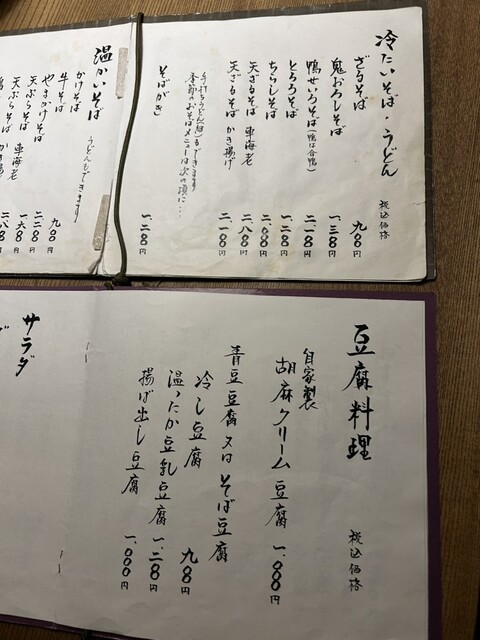 冷たいそば・うどん
税込価格
ざるそば 九〇〇円
鬼おろしそば 一.三〇〇円
鴨せいろそば(鴨は合鴨)
とろろそば 一.二〇〇円
ちらしそば
天ざるそば 車海老 二.八〇〇円
天ざるそば かき揚げ 二.一〇〇円
手打ちうどん(細)もできます
季節のおそばメニューは次の項に…
そばがき 一.二〇〇円
温かいそば
うどんもできます
かけそば 九〇〇円
牛そば
やまかけそば
天ぷらそば 車海老 二.八〇〇円
天ぷらそば かき揚
豆腐料理
税込価格
自家製
胡麻クリーム豆腐 一.〇〇〇円
青豆豆腐又はそば豆腐
冷し豆腐 九〇〇円
温ったか豆乳豆腐 一.二〇〇円
揚げ出し豆腐 一.〇〇〇円
サラダ